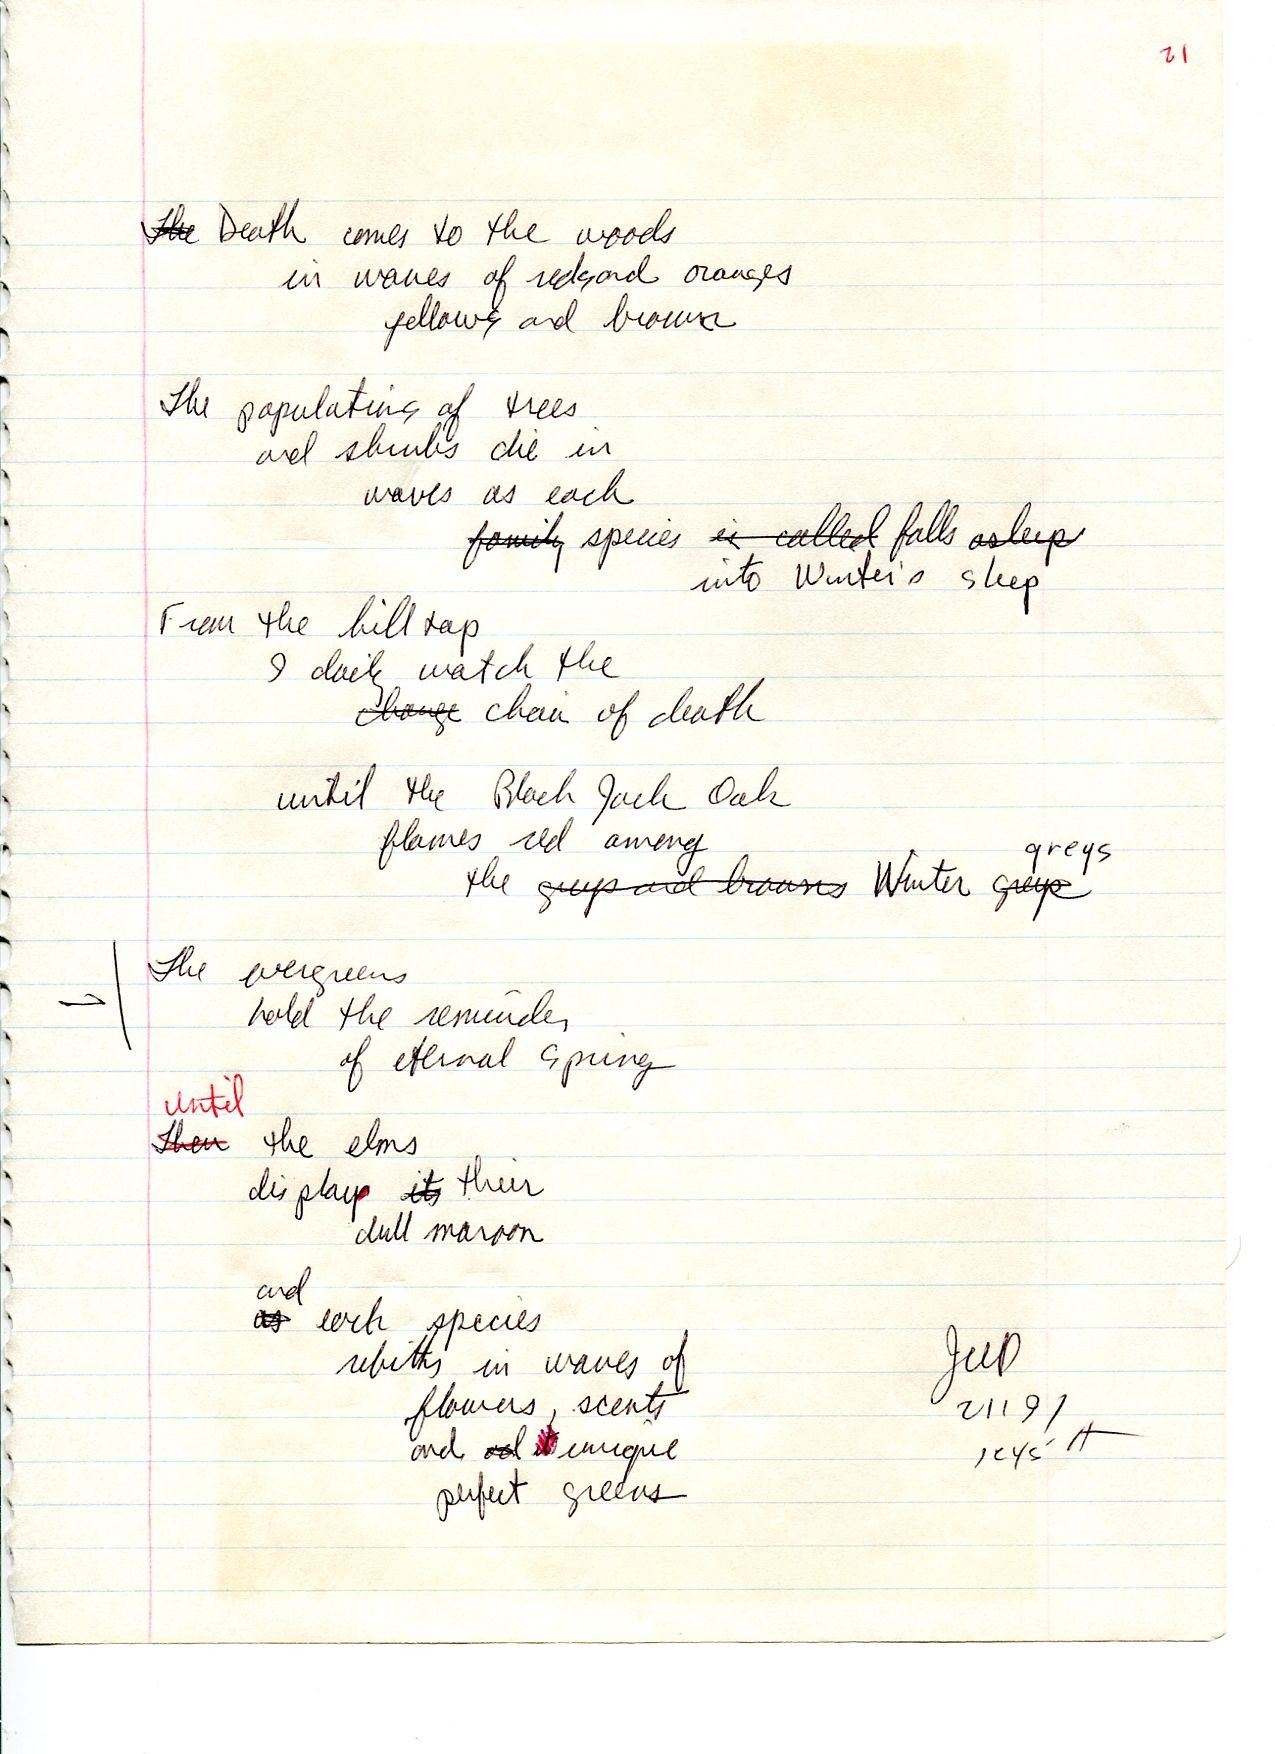 21
The Death comes to the woods
in waves of reds and oranges
yellows and browns
The populations of trees
and shrubs die in
waves as each
family species is called falls asleep
into Winter's sleep
From the hill top
I daily watch the
change chain of death
until the Black Jack Oak
flames red among
greys
the greys and browns Winter greys
The evergreens
hold the reminder
of eternal Spring
until
Then the elms
display its their
dull maroon
and
as each species
rebirths in waves of
flowers, scents
and unique
perfect greens